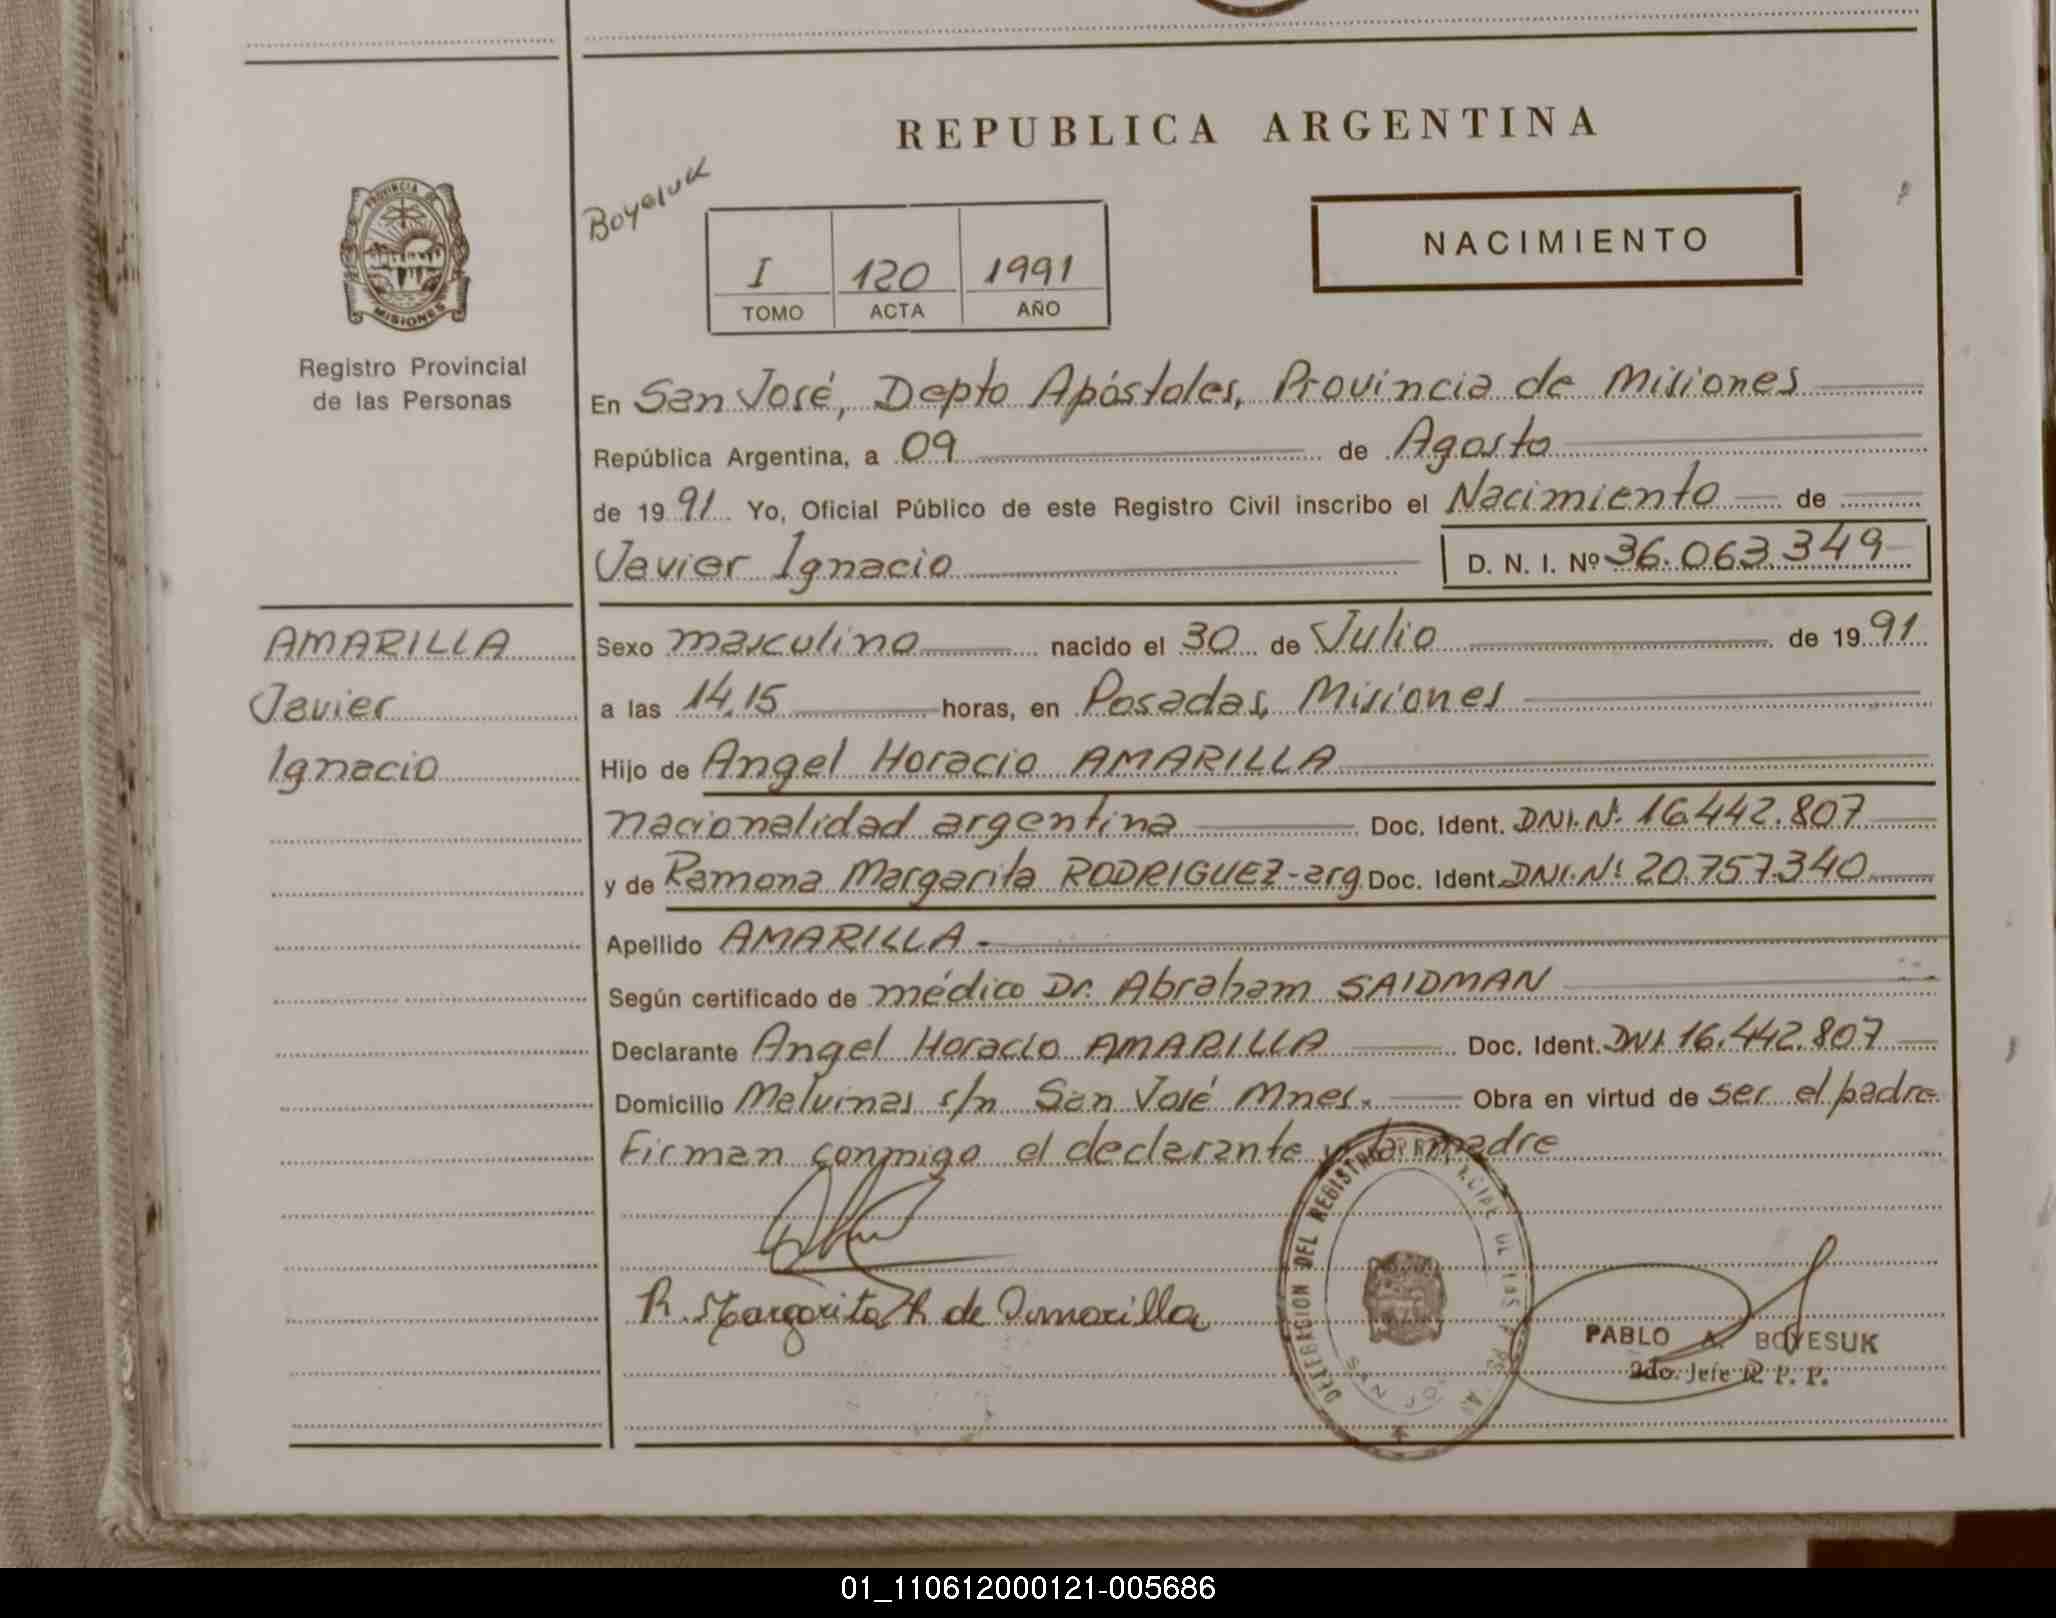 REPUBLICA ARGENTINA
PROVINCIA DE
MISIONES
Registro Provincial
de las Personas
Boyesuk
I 120 1991
TOMO ACTA AÑO
NACIMIENTO
En San José, Depto Apóstoles, Provincia de Misiones
República Argentina, a 09 de Agosto
de 1991 Yo, Oficial Público de este Registro Civil inscribo el Nacimiento de
Javier Ignacio D. N. I. Nº 36.063.349
AMARILLA
Javier
Ignacio
Sexo masculino nacido el 30 de Julio de 1991
a las 14,15 horas, en Posadas, Misiones
Hijo de Angel Horacio AMARILLA
nacionalidad argentina Doc. Ident. DNI.Nº 16.442.807
y de Ramona Margarita RODRIGUEZ-arg Doc. Ident. DNI.Nº 20.757.340
Apellido AMARILLA-
Según certificado de médico Dr. Abraham SAIDMAN
Declarante Angel Horacio AMARILLA Doc. Ident. DNI 16.442.807
Domicilio Malvinas s/n San José Mnes. Obra en virtud de ser el padre
Firman conmigo el declarante y la madre
R. Margarita R de Amarilla
DELEGACION DEL REGISTRO PROVINCIAL DE LAS
PABLO A. BOYESUK
2do. Jefe R. P. P.
01_110612000121-005686